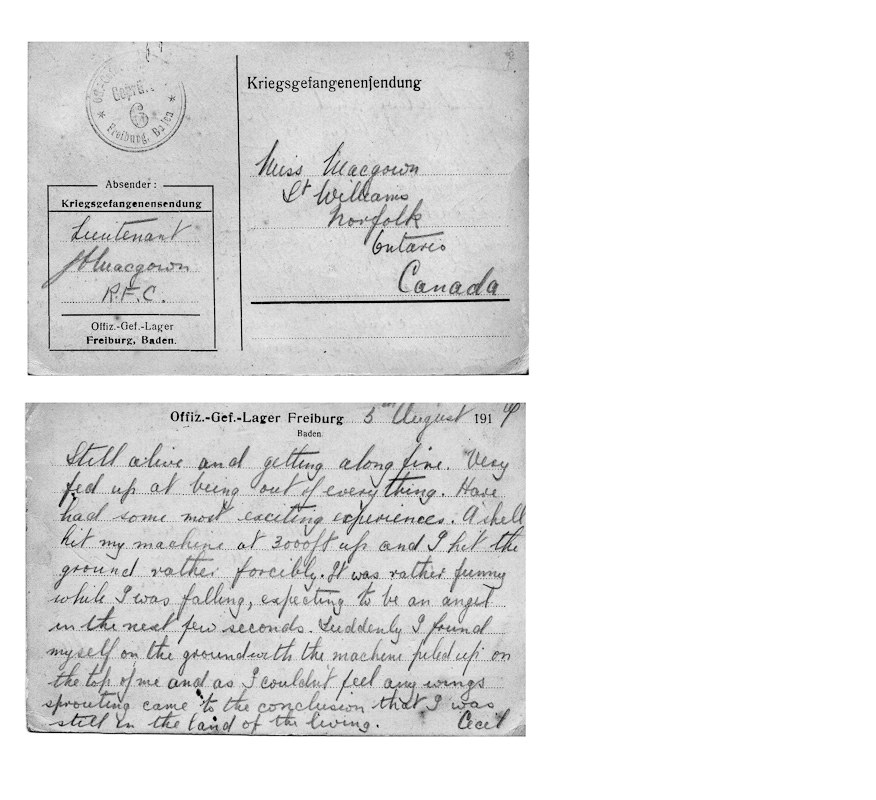 Geprüft
6
Freiburg, Baden
Kriegsgefangenensendung
Miss Macgown
St Williams
Norfolk
Ontario
Canada
Absender:
Kriegsgefangenensendung
Lieutenant
Macgown
R.F.C.
Offiz.-Gef.-Lager
Freiburg, Baden.
Offiz.-Gef.-Lager Freiburg 5th August 191
Baden.
Still alive and getting along fine. Very
fed up at being out of everything. Have
had some most exciting experiences. A shell
hit my machine at 3000ft up and I hit the
ground rather forcibly. It was rather funny
while I was falling, expecting to be an angel
in the next few seconds. Suddenly I found
myself on the ground with the machine piled up on
the top of me and as I couldn't feel any wings
sprouting came to the conclusion that I was
still in the land of the living. Cecil